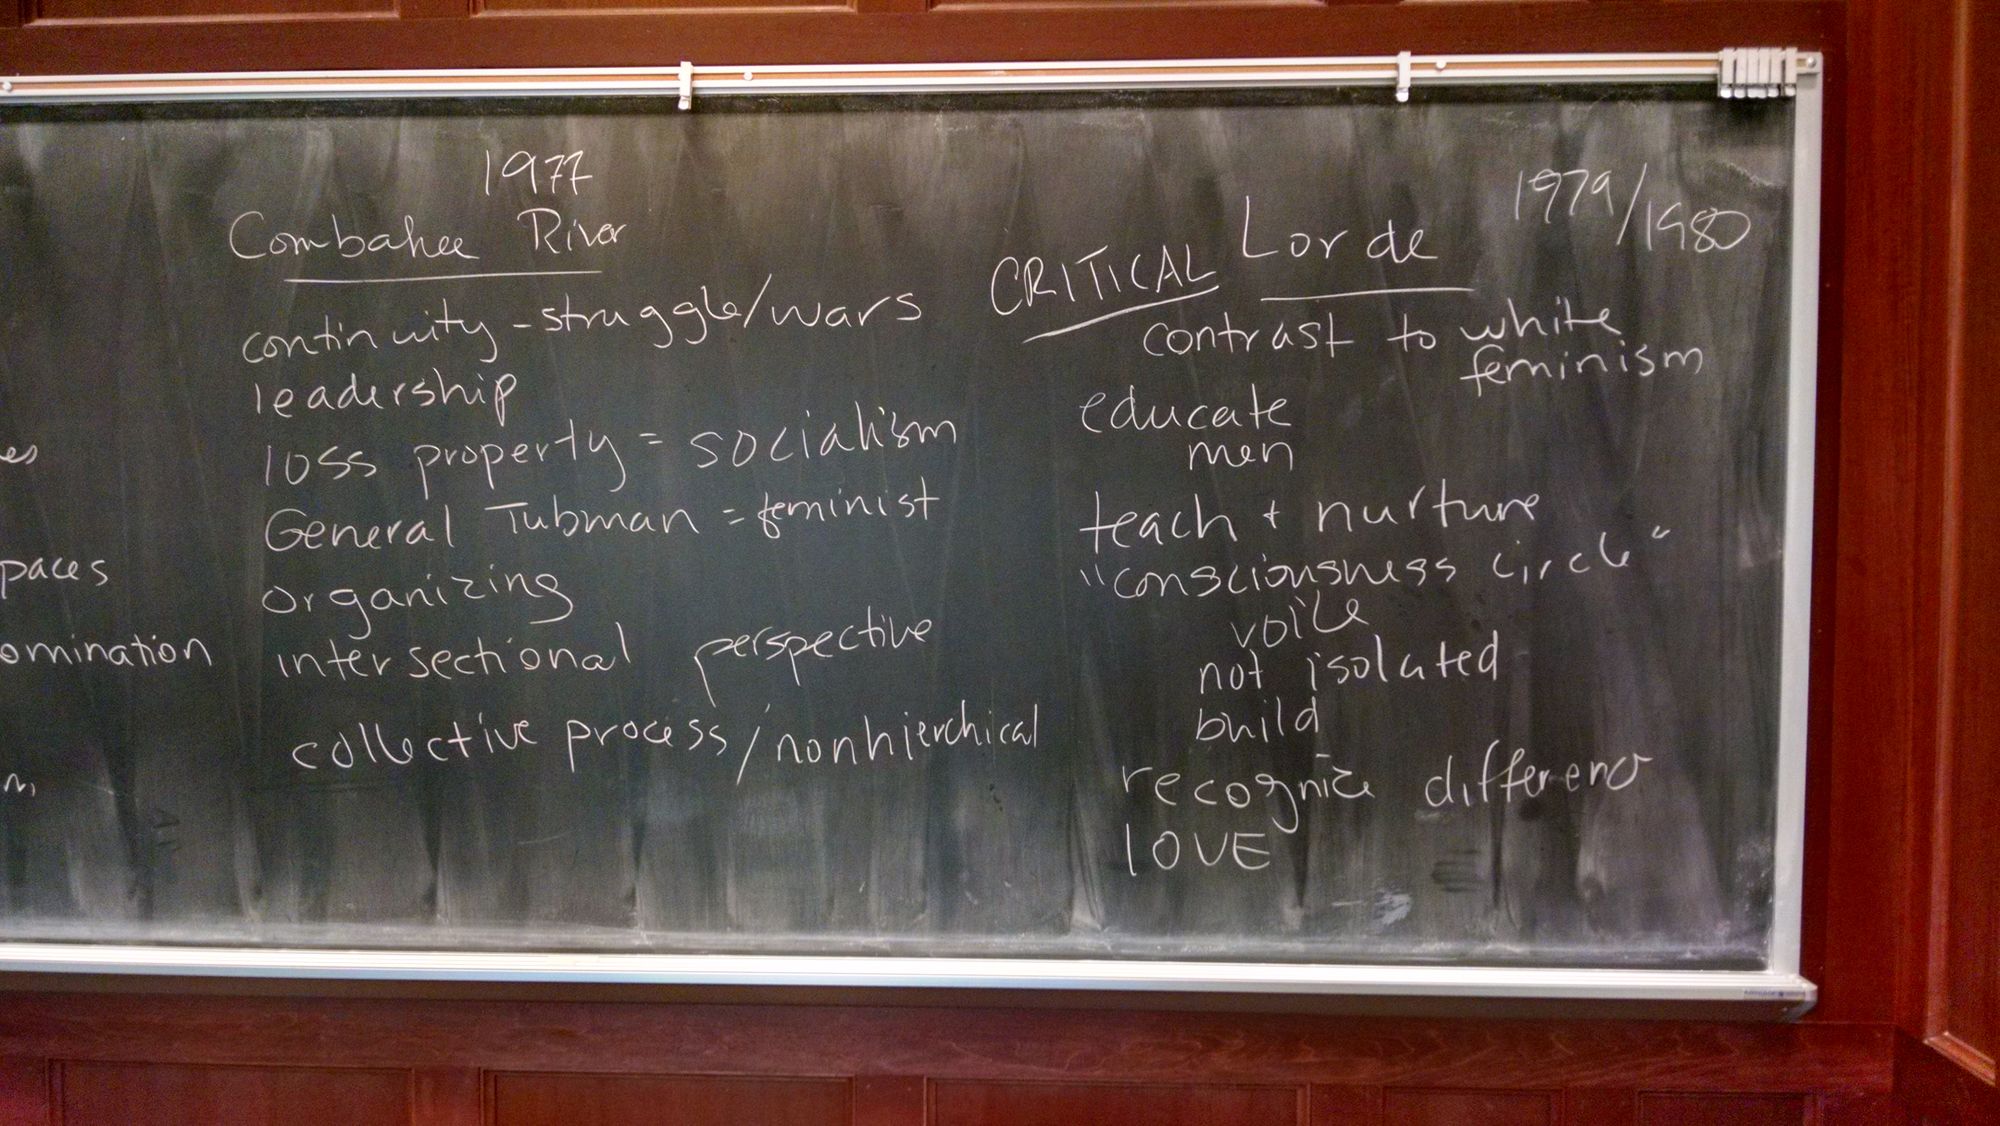 es
paces
omination
m,
1977
Combahee River
continuity - struggle/wars
leadership
loss property = socialism
General Tubman = feminist
organizing
intersectional perspective
collective process/nonhierchical
1979/1980
CRITICAL Lorde
contrast to white
feminism
educate
men
teach + nurture
"consciousness circle"
voice
not isolated
build
recognize difference
LOVE